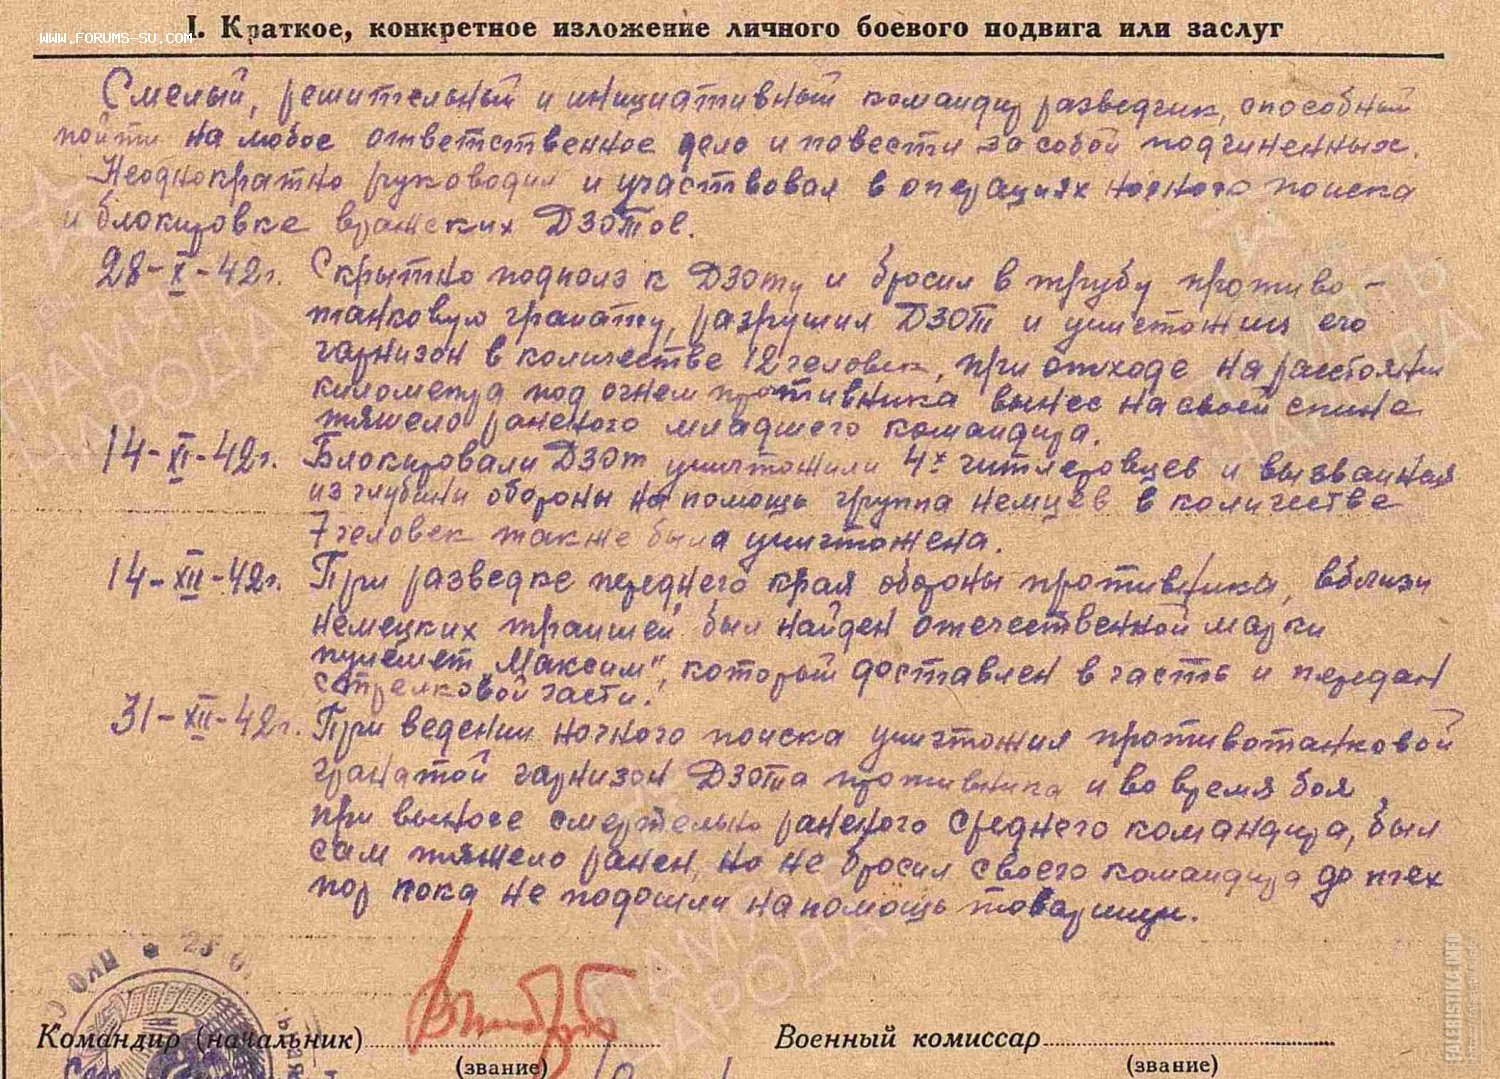 www.forums-su.com
I. Краткое, конкретное изложение личного боевого подвига или заслуг
Смелый, решительный и инициативный командир разведчик, способный
пойти на любое ответственное дело и повести за собой подчиненных.
Неоднократно руководил и участвовал в операциях ночного поиска
и блокировке вражеских ДЗОТов.
28-X-42г. Скрытно подполз к ДЗОТу и бросил в трубу противо-
танковую гранату, разрушил ДЗОТ и уничтожил его
гарнизон в количестве 12 человек, при отходе на расстоянии
километра под огнем противника вынес на своей спине
тяжело раненого младшего командира.
14-XI-42г. Блокировали ДЗОТ уничтожили 4х гитлеровцев и вызванная
из глубины обороны на помощь группа немцев в количестве
7 человек также была уничтожена.
14-XII-42г. При разведке переднего края обороны противника, вблизи
немецких траншей, был найден отечественной марки
пулемет „Максим", который доставлен в часть и передан
стрелковой части.
31-XII-42г. При ведении ночного поиска уничтожил противотанковой
гранатой гарнизон ДЗОТа противника и во время боя
при выносе смертельно раненого среднего командира, был
сам тяжело ранен, но не бросил своего командира до тех
пор пока не подошли на помощь товарищи.
Командир (начальник)
(звание)
Военный комиссар
(звание)
ПАМЯТЬ НАРОДА
ПАМЯТЬ НАРОДА
ПАМЯТЬ НАРОДА
FALERISTIKA.INFO